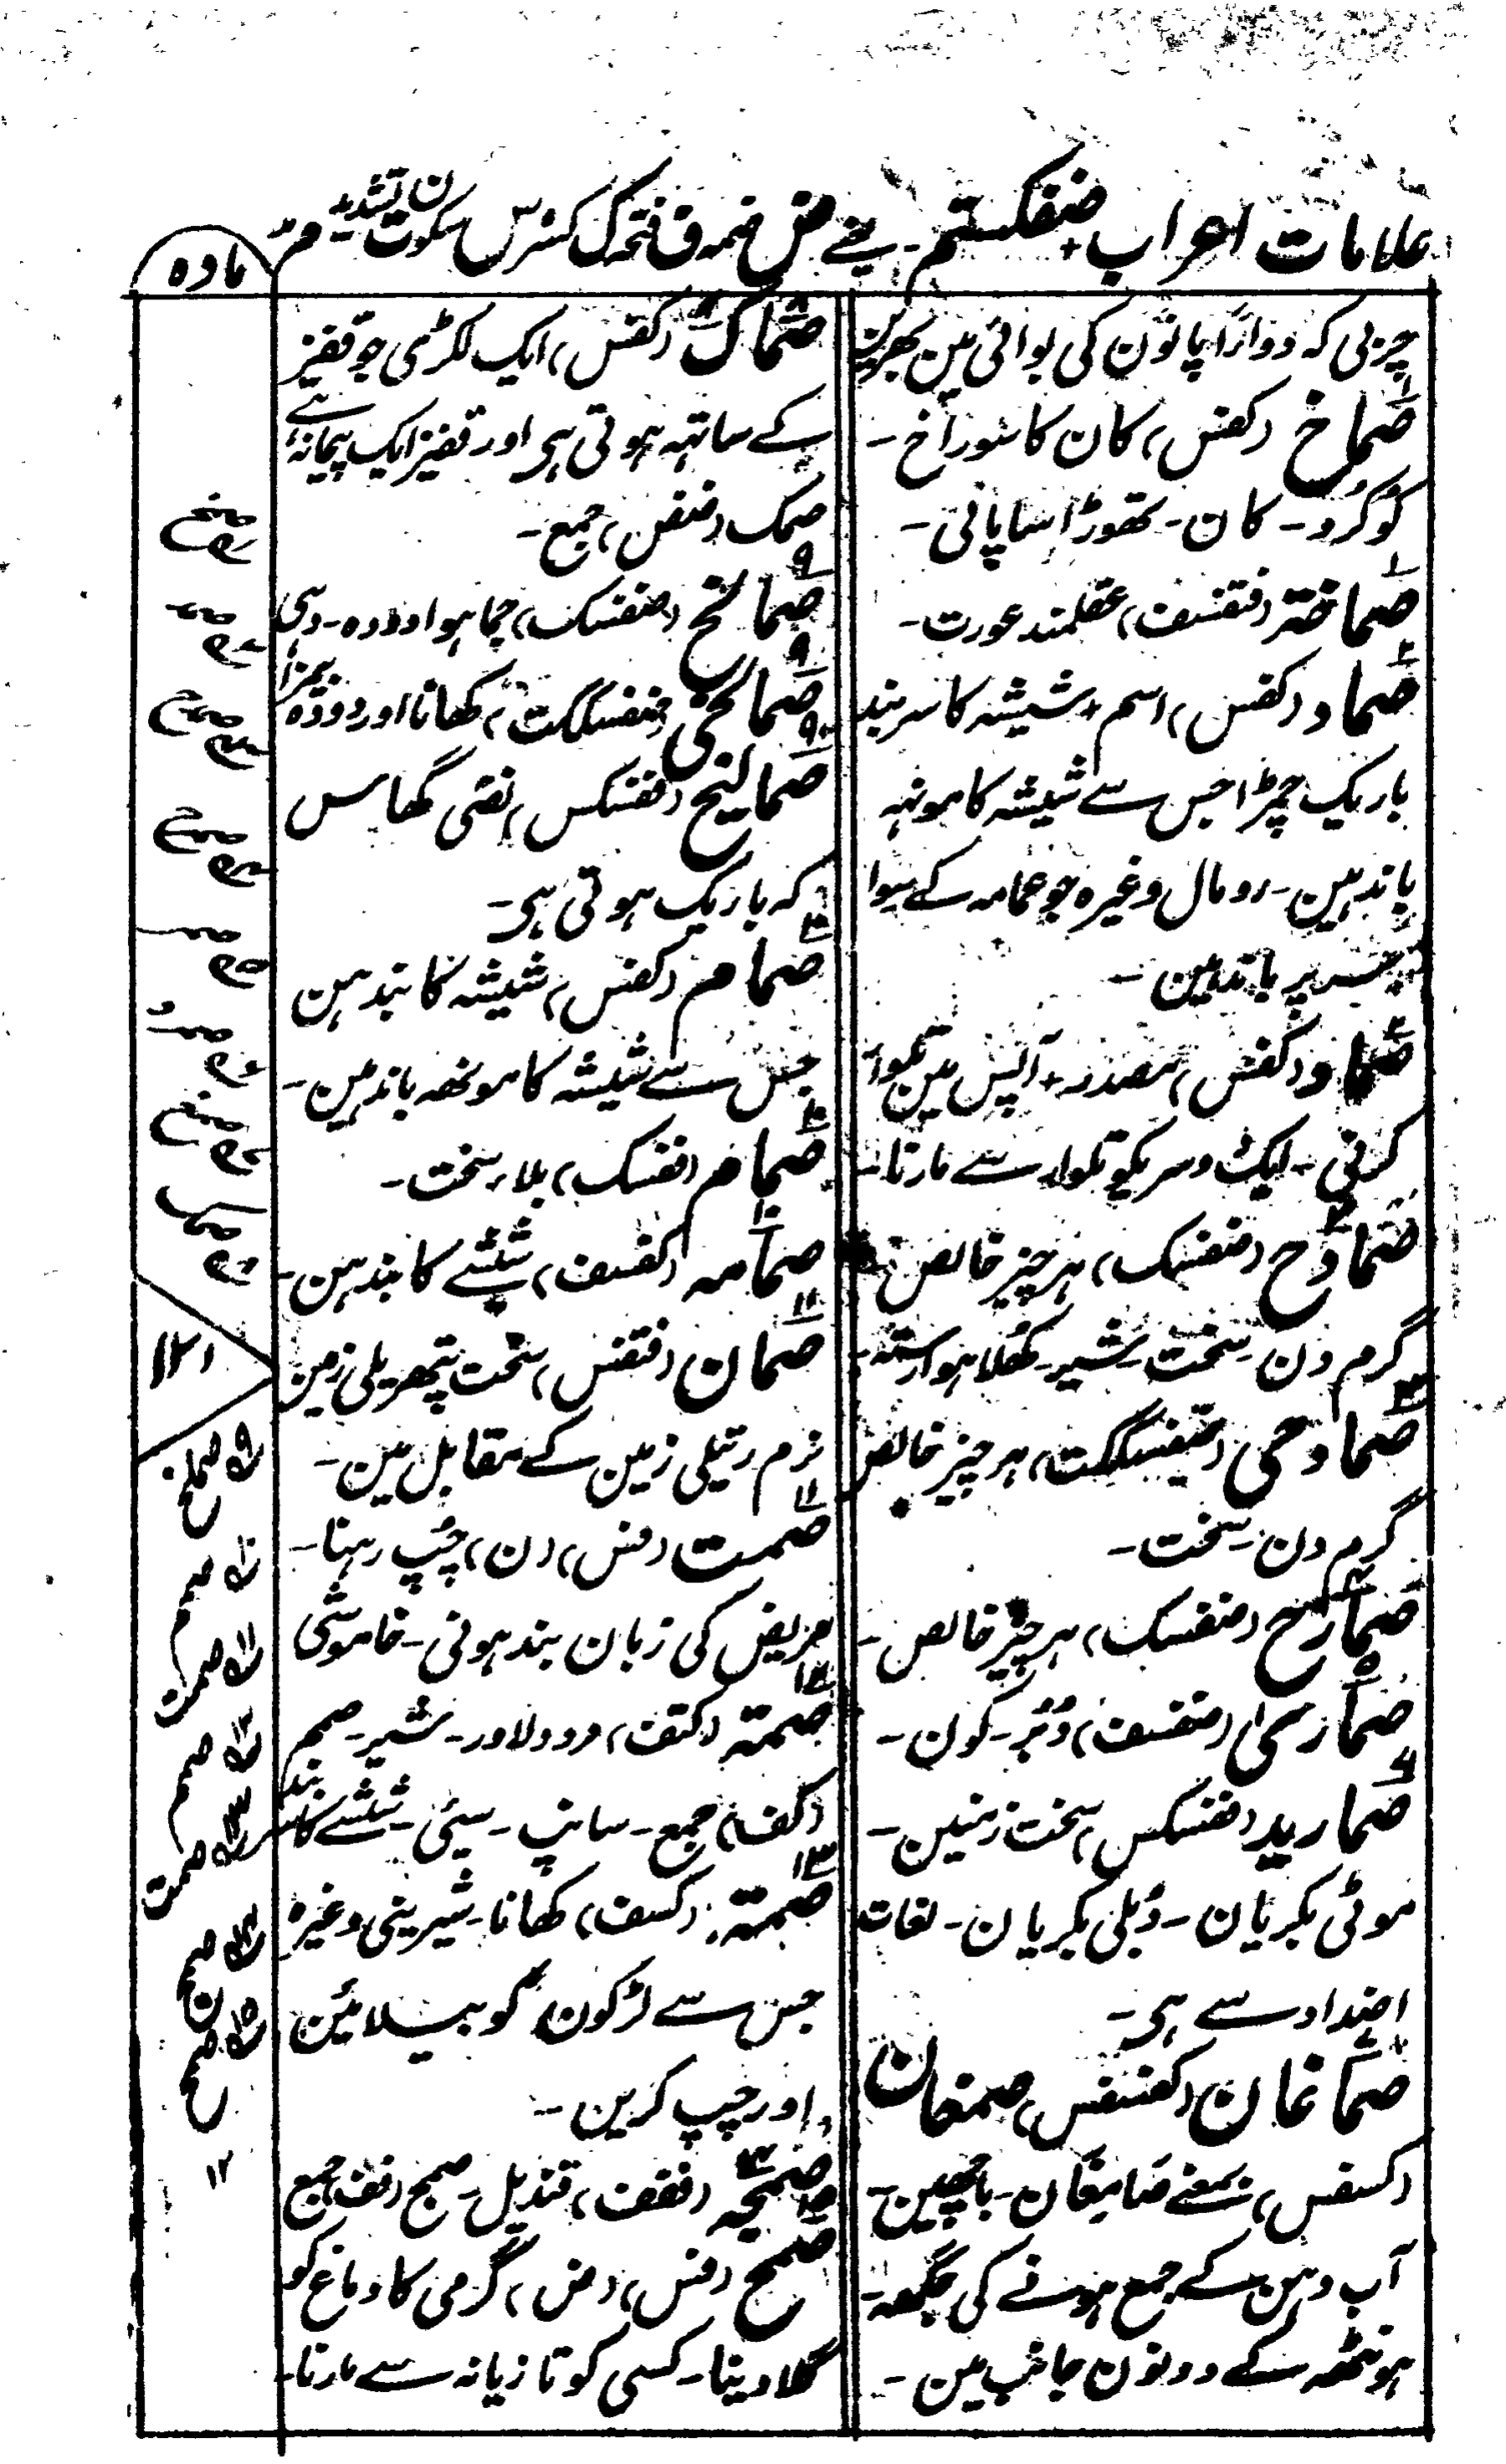 علامات اعراب ضفکستم - یعنے ض ضمہ ف فتحہ ک کسر س سکون ت تشدید م مد
مادہ
چربی کہ دوازاً پانون کی بوائی مین بھرین
صماخ (کفس) کان کا سوراخ -
گوگرد - کان - تھوڑا سا پانی -
صماختہ (فتفسف) عقلمند عورت -
صماد (کفس) اسم + شیشہ کا سربند
باریک چمڑا جس سے شیشہ کا مونہہ
باندہین - رومال وغیرہ جو عمامہ کے سوا
سر پر باندہین -
صماد (کفس) مصدر + آپس مین تلوار
کرنی - ایک دوسریکو تلوار سے مارنا -
صمادح (ضفسک) ہر چیز خالص
گرم دن - سخت - شیر - کھلا ہوا رستہ -
صمادحی (ضفسککت) ہر چیز خالص
گرم دن - سخت -
صمارح (ضفسک) ہر چیز خالص -
صماریٰ (ضفسف) دُبُر - کون -
صمارید (ففسکس) سخت زمینین -
موٹی بکریان - دُبلی بکریان - لغات
اضداد سے ہی -
صماغان (کفسفس) صمغان
(کسفس) بمعنے صامغان - باچھین -
آب دہن کے جمع ہونے کی جگھہ -
ہونٹھہ کے دونون جانب مین -
صماک (کفس) ایک لکڑی جو قفیز
کے ساتہہ ہوتی ہی اور قفیز ایک پیمانہ ہے
صمک (ضفس) جمع -
صمالخ (ضفسک) جما ہوا دودہ - دہی
صمالخی (ضفسککت) کھانا اور دودہ بیمزا
صمالیخ (ففسکس) نصّی گھاس
کہ باریک ہوتی ہی -
صمام (کفس) شیشہ کا بندہن
جس سے شیشہ کا مونھہ باندہین -
صمام (ففسک) بلاء سخت -
صمامہ (کفسف) شیشے کا بندہن -
صمان (فتفس) سخت پتھریلی زمین
نرم ریتلی زمین کے مقابل مین -
صمت (فس) (ن) چُپ رہنا -
مریض کی زبان بند ہونی - خاموشی
صمتہ (کتف) مرد دلاور - شیر - صمم
(کف) جمع - سانپ - سیئی - شیشے کا سربند
صمتہ (کسف) کھانا - شیرینی وغیرہ
جس سے لڑکون کو بہلائین
اور چپ کرین -
صمجہ (ففف) قندیل - صمج (فف) جمع
صمح (فس) (ض) گرمی کا دماغ کو
گلادینا - کسی کو تازیانہ سے مارنا -
۹ صملخ
۱۰ صمم
۱۱ صمت
۱۲ صمم
۱۳ صمت
۱۴ صمج
۱۵ صمح
۱۲